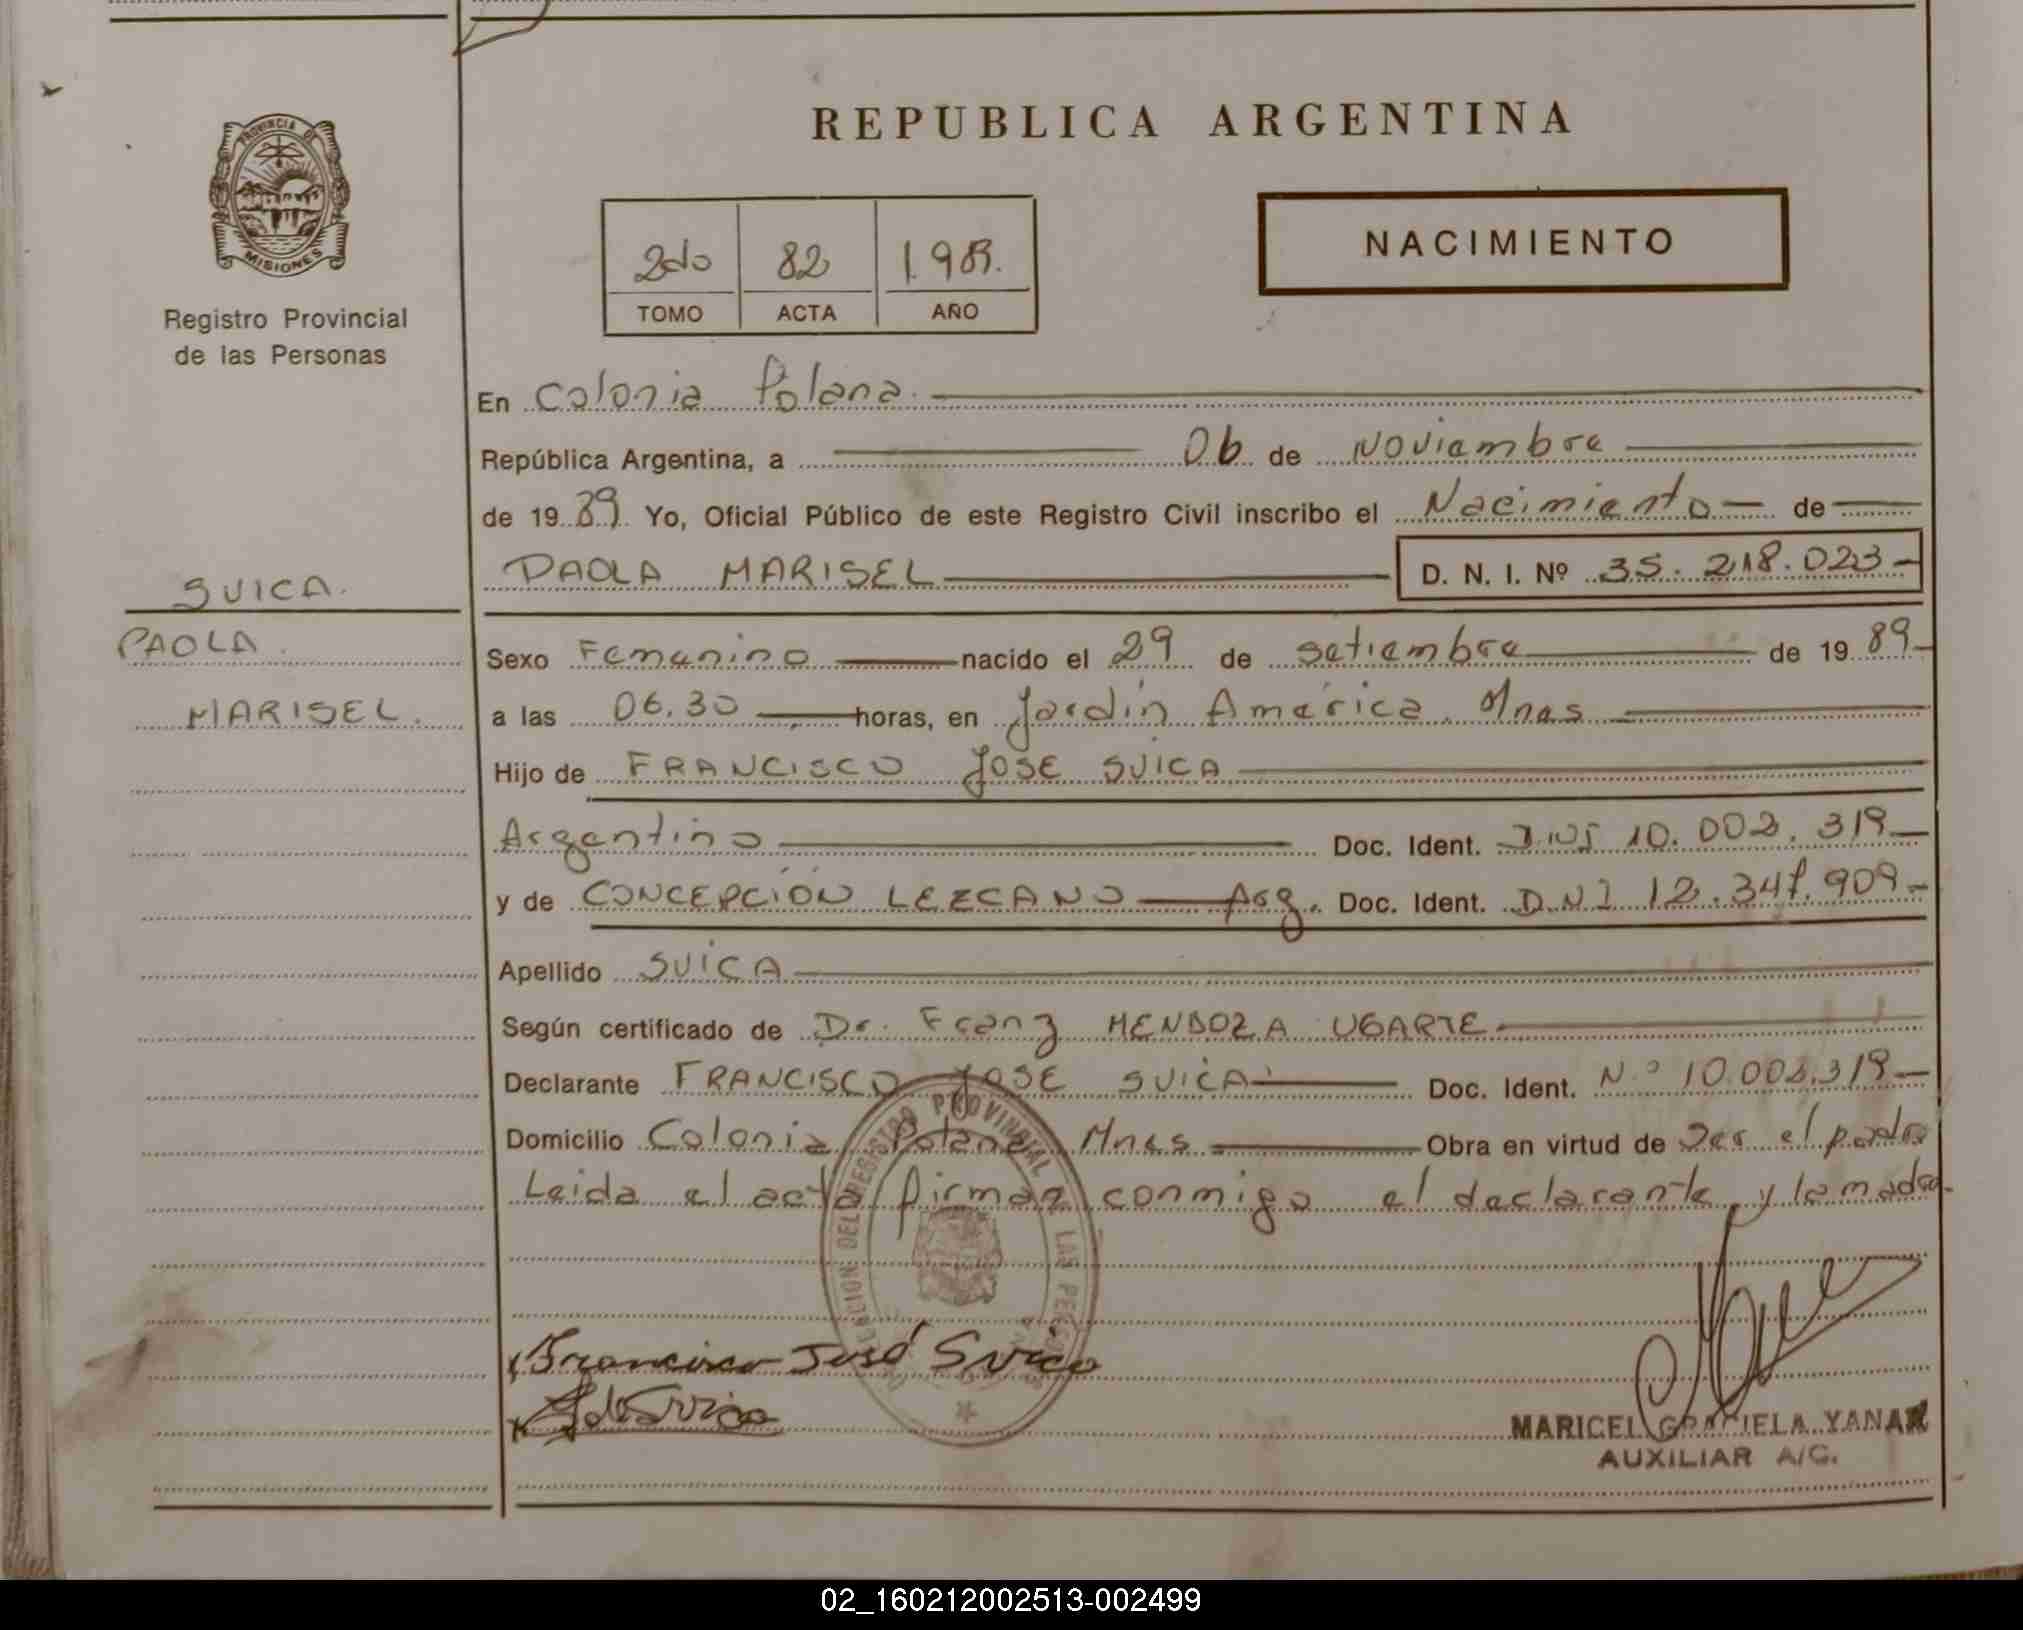 REPUBLICA ARGENTINA
PROVINCIA DE
MISIONES
Registro Provincial
de las Personas
2do 82 1.989.
TOMO ACTA AÑO
NACIMIENTO
En Colonia Polana.
República Argentina, a 06 de Noviembre
de 19 89 Yo, Oficial Público de este Registro Civil inscribo el Nacimiento de
PAOLA MARISEL D. N. I. Nº 35.218.023
SUICA.
PAOLA
MARISEL.
Sexo Femenino nacido el 29 de setiembre de 19 89
a las 06.30 horas, en Jardín América Mnes
Hijo de FRANCISCO JOSE SUICA
Argentino Doc. Ident. DNI 10.002.319
y de CONCEPCIÓN LEZCANO Arg. Doc. Ident. D.N.I 12.347.909
Apellido SUICA
Según certificado de Dr. Franz MENDOZA UGARTE
Declarante FRANCISCO JOSE SUICA Doc. Ident. Nº 10.002.319
Domicilio Colonia Polana Mnes Obra en virtud de ser el padre
Leida el acta firman conmigo el declarante y la madre
REGISTRO PROVINCIAL DE LAS
Francisco José Svica
MARICEL GRACIELA YANAK
AUXILIAR A/C.
02_160212002513-002499